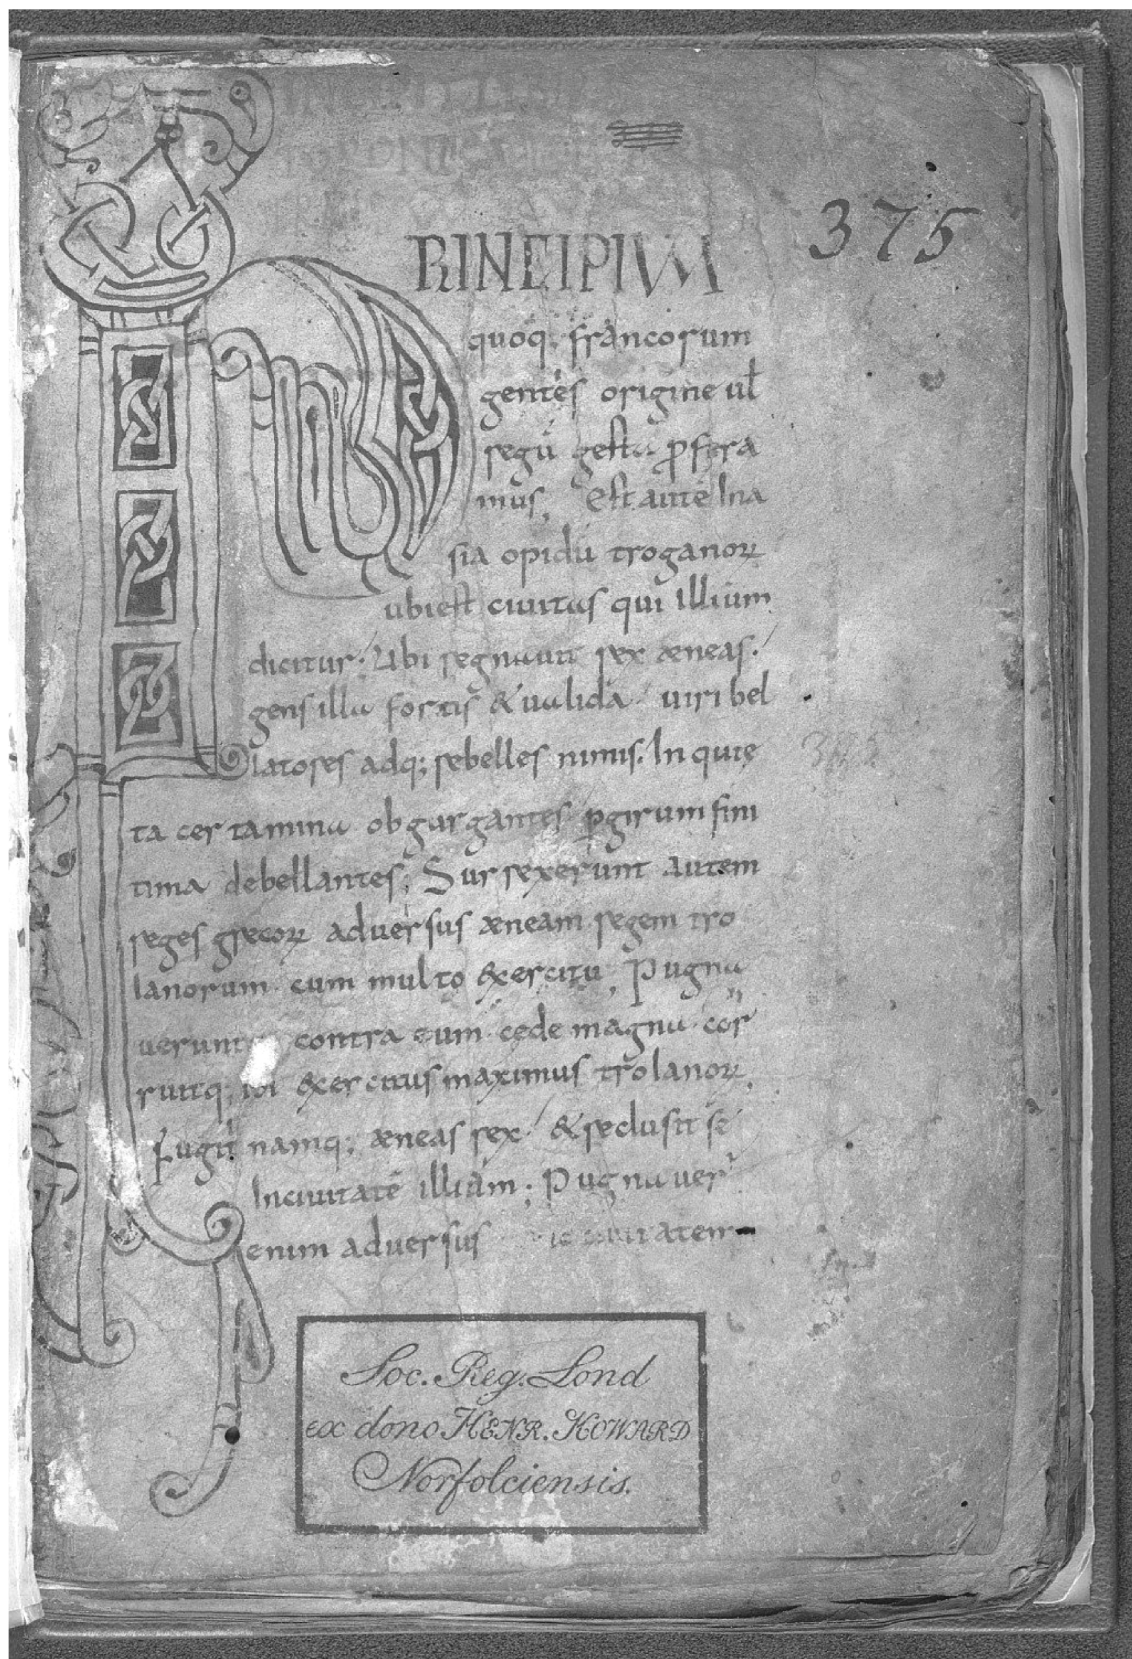 PRINCIPIUM
375
quoq; francorum
gentes origine ul
regū gesta ꝓfera
mus, Est autē In a
sia opidū troganoꝝ
ubi est ciuitas qui illium
dicitur; Ubi regnauit rex æneas.
gens illa fortis & ualida uiri bel
latores adq; rebelles nimis. In quie
ta certamina obgurgantes ꝑgirum fini
tima debellantes; Surrexerunt autem
reges grecoꝝ aduersus æneam regem tro
ianorum cum multo exercitu, Pugna
uerunt contra eum cede magna cor
ruitq; ibi exercitus maximus troianoꝝ,
Fugit namq; æneas rex & reclusit sē
In ciuitatē illium; Pugnauer
enim aduersus ciuitatem
Soc. Reg. Lond
ex dono HENR. HOWARD
Norfolciensis.